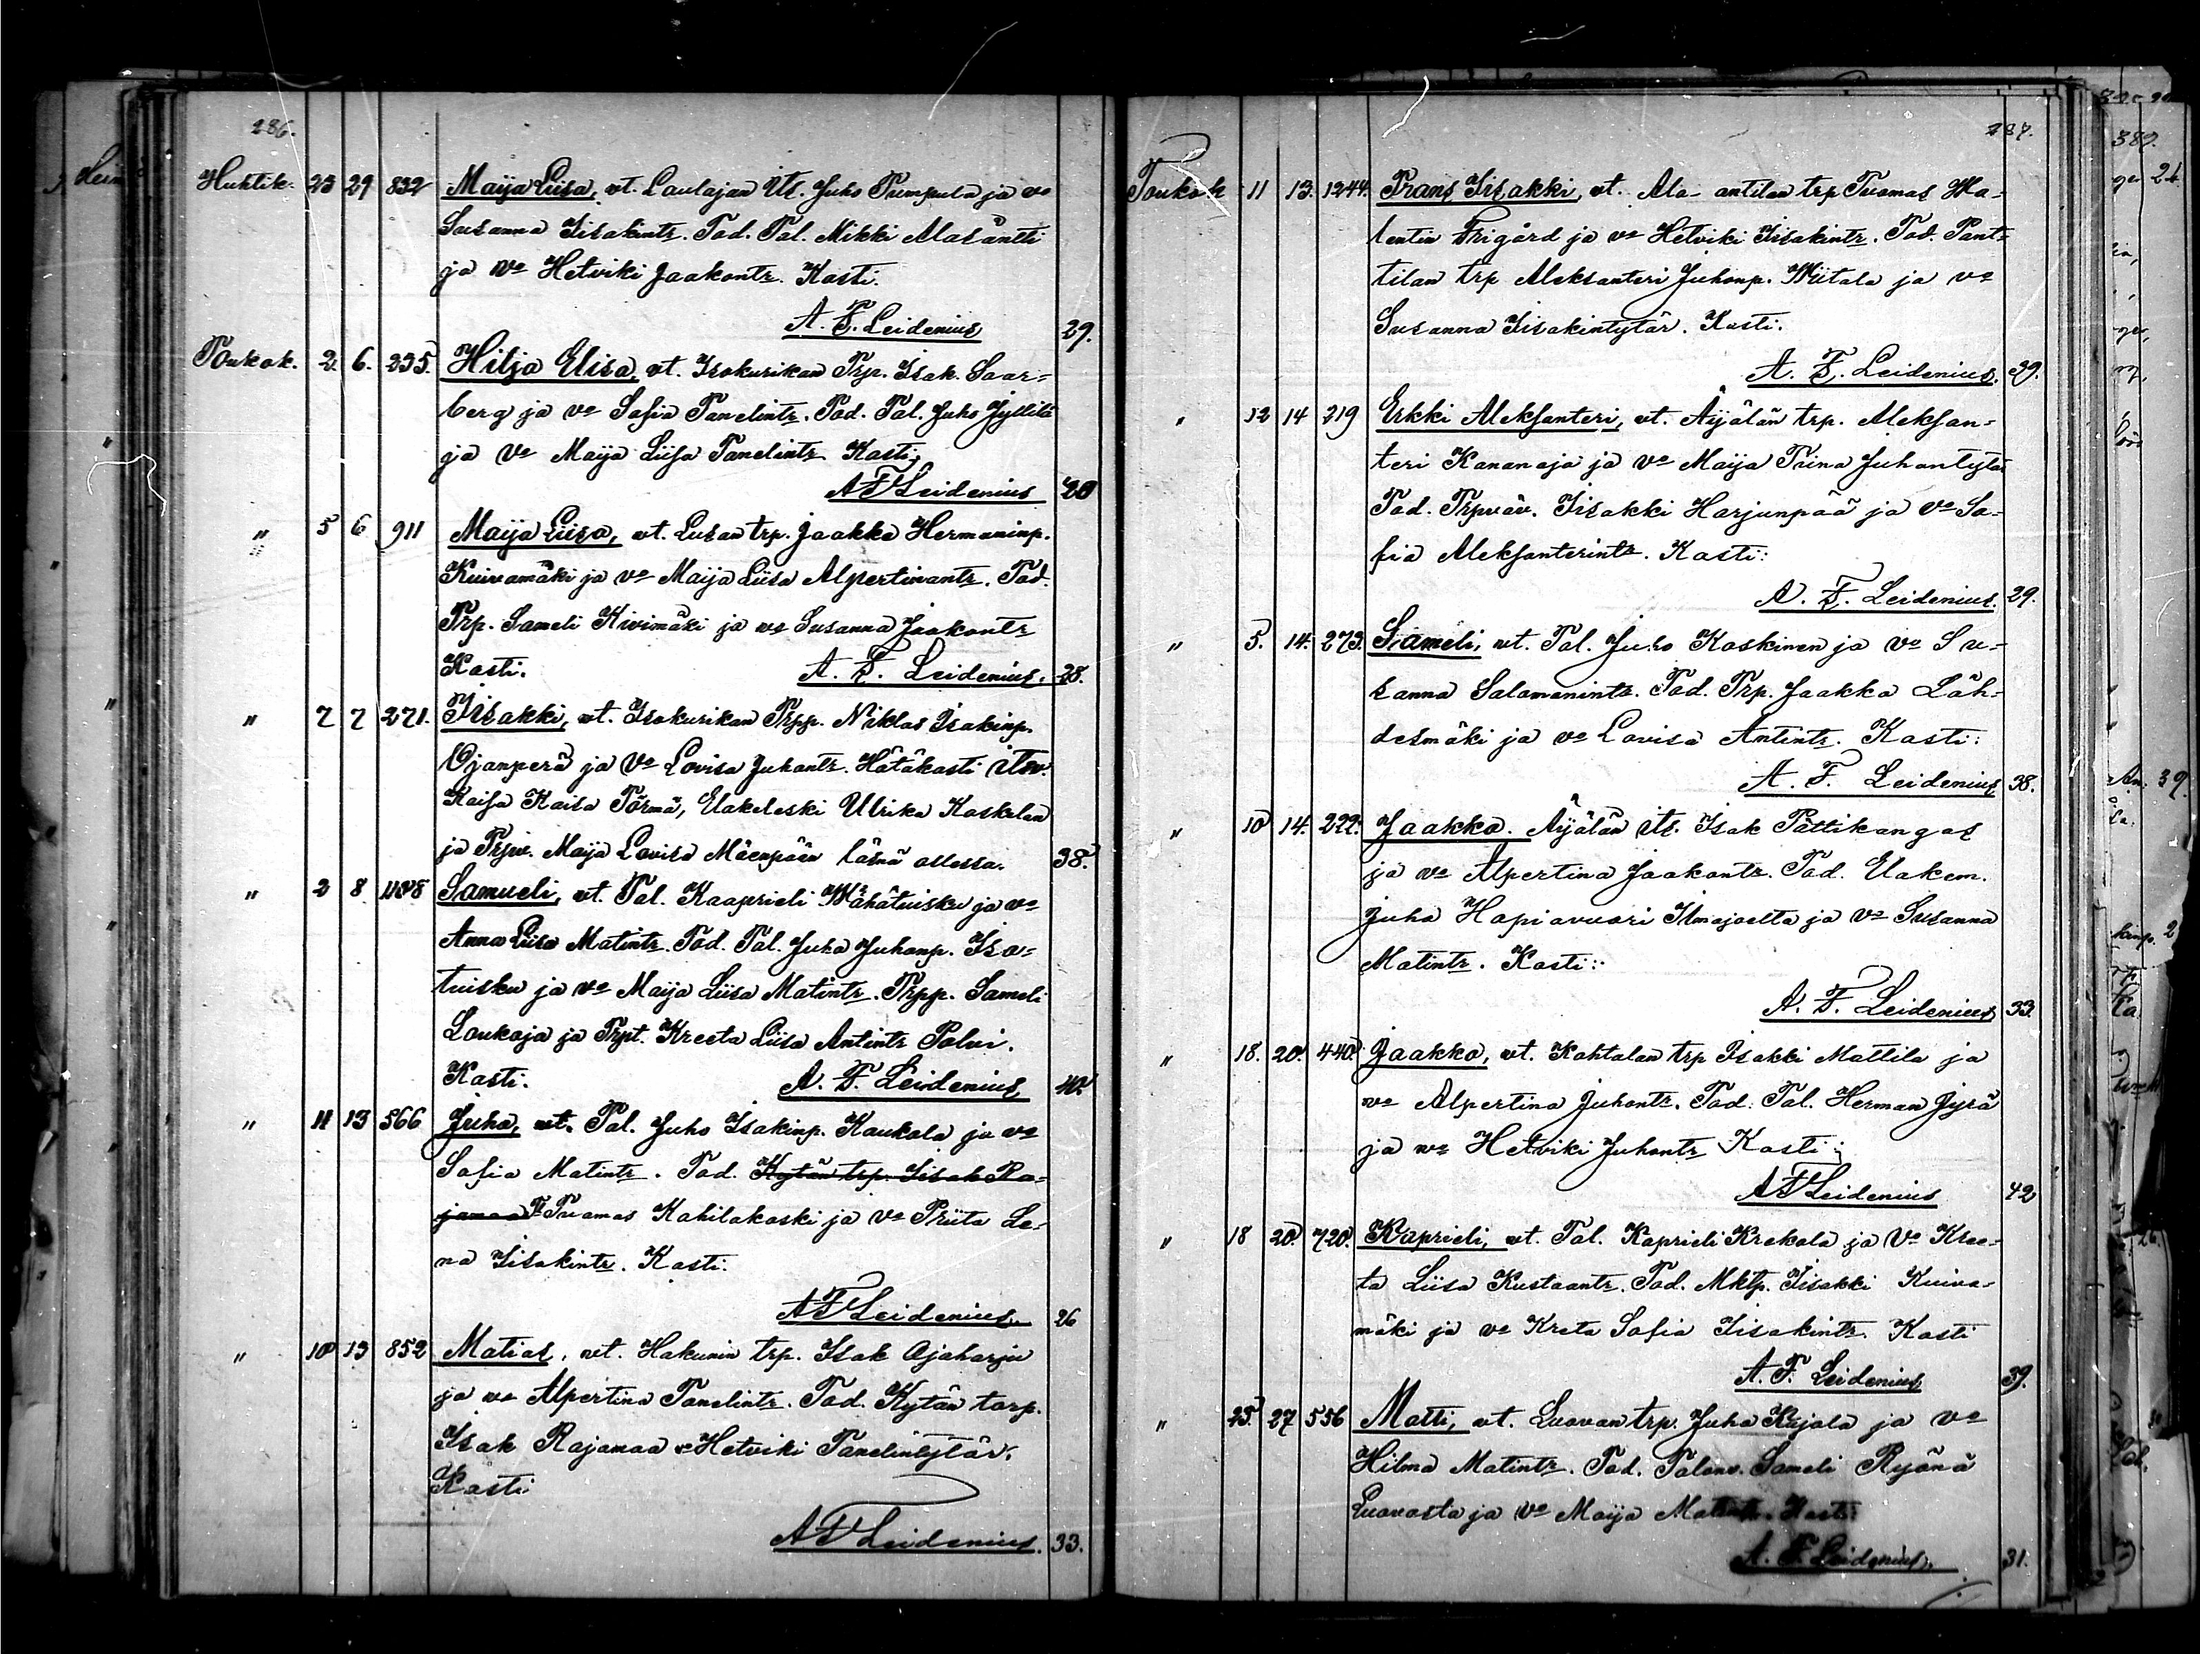 286.
Huhtik. 23 29 832 Maija Liisa, vt. Laulajan Its. Juho Pumpula ja vo
Susanna Iisakintr. Tod. Tal. Mikki Alasäntti
ja vo Hetviki Jaakontr. Kasti.
A. F. Leidenius 29.
Toukok. 2. 6. 235. Hilja Elisa, vt. Isokurikan Trp. Isak. Saar-
berg ja vo Sofia Tanelintr. Tod. Tal. Juho Jyllilä
ja Vo Maija Liisa Tanelintr. Kasti.
A F Leidenius 20
" 5 6 911 Maija Liisa, vt. Lusan trp. Jaakko Hermaninp.
Kuivamäki ja vo Maija Liisa Alpertinantr. Tod.
Trp. Sameli Kivimäki ja vo Susanna Jaakontr
Kasti. A. F. Leidenius. 28.
" 7 7 271. Iisakki, vt. Isokurikan Trpp. Niklas Isakinp.
Ojanperä ja Vo Lovisa Juhantr. Hätäkasti itsv.
Kaisa Törmä, Eläkeleski Ulrika Koskelan
ja Trpv. Maija Lovisa Mäenpään läsnä ollessa. 38.
" 2 8 Samueli, vt. Tal. Kaaprieli Wähätuisku ja vo
Anna Liisa Matintr. Tod. Tal. Juha Juhanp. Iso-
tuisku ja vo Maija Liisa Matintr. Trpp. Sameli
Loukaja ja Trpt. Kreeta Liisa Antintr Polvi.
Kasti. A. F. Leidenius 40.
" 11 13 566 Juha, vt. Tal. Juho Isakinp. Kaukola ja vo
Sofia Matintr. Tod. Kytän trp. Iisak Ra-
jamaa Tuomas Kahilakoski ja vo Priita Le-
na Iisakintr. Kasti.
A F Leidenius. 26
" 10 13 852 Matias, vt. Hakunin trp. Isak Ojaharju
ja vo Alpertina Tanelintr. Tod. Kytän torp.
Isak Rajamaa & Hetviki Tanelintytär.
Kasti
A F Leidenius. 33.
287.
Toukok 11 13. 1244. Frans Iisakki, vt. Ala-antilan trp Tuomas Wa-
lentin Frigård ja vo Hetviki Iisakintr. Tod. Pant-
tilan trp Aleksanteri Juhonp. Wiitala ja vo
Susanna Iisakintytär. Kasti.
A. F. Leidenius. 29.
" 12 14 219 Erkki Aleksanteri, vt. Äijälän trp. Aleksan-
teri Kananoja ja vo Maija Triina Juhantytär
Tod. Trpväv. Iisakki Harjunpää ja vo So-
fia Aleksanterintr. Kasti:
A. F. Leidenius. 29.
" 5. 14. 273. Sameli, vt. Tal. Juho Koskinen ja vo Su-
sanna Salomonintr. Tod. Trp. Jaakko Läh-
desmäki ja vo Lovisa Antintr. Kasti:
A. F. Leidenius 38.
" 10 14. 222. Jaakko. Äijälän its. Isak Pättikangas
ja vo Alpertina Jaakontr. Tod. Elakem.
Juha Hapiavuori Ilmajoelta ja vo Susanna
Matintr. Kasti:
A. F. Leidenius 33.
" 18. 20. 440. Jaakko, vt. Kohtalan trp Isakki Mattila ja
vo Alpertina Juhontr. Tod. Tal. Herman Jyrä
ja vo Hetviki Juhontr Kasti:
A F Leidenius 42
" 18 20. 720. Kaprieli, vt. Tal. Kaprieli Krekola ja Vo Kree-
ta Liisa Kustaantr. Tod. Mktp. Iisakki Kuiva-
mäki ja vo Kreta Sofia Iisakintr. Kasti
A. F. Leidenius 39.
" 25. 27 556 Matti, vt. Luovan trp. Juha Kujala ja vo
Hilma Matintr. Tod. Talonv. Sameli Ryönä
Luovasta ja Vo Maija Matintr. Kasti:
A. F. Leidenius. 31.